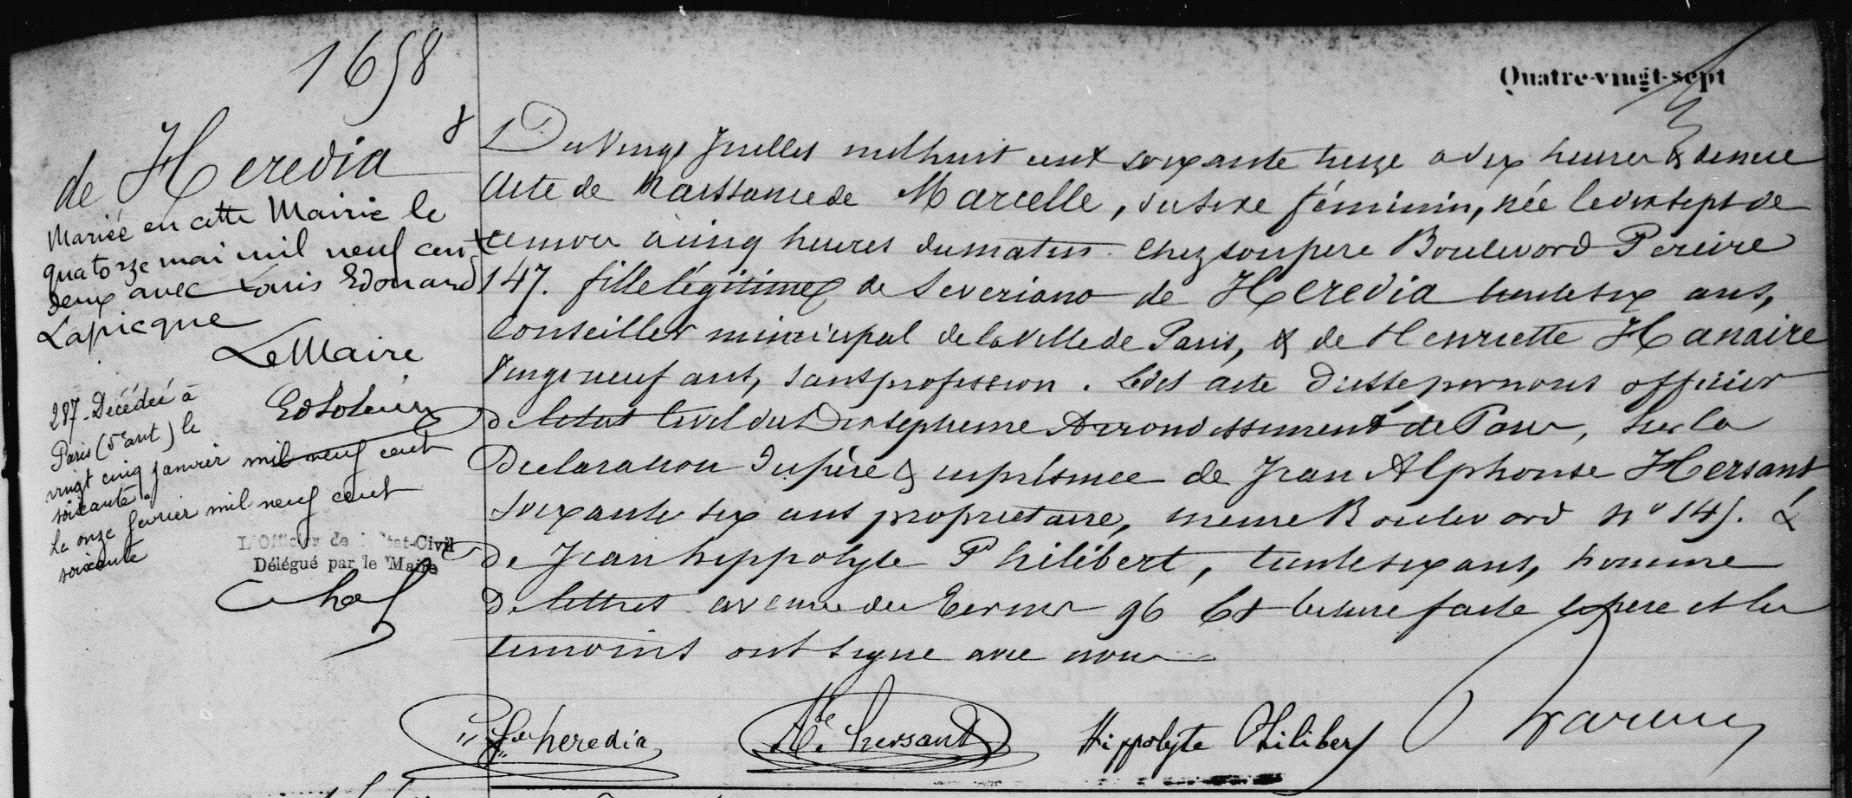 1658
Quatre-vingt-sept
de Heredia
Mariée en cette Mairie le
quatorze mai mil neuf cent
deux avec Louis Edouard
Lapicque
Le Maire
287 - Décédée à
Paris (5e arrt) le
vingt cinq janvier mil neuf cent
soixante.
Le onze février mil neuf cent
soixante
L'Officier de l'Etat-Civil
Délégué par le Maire
Du Vingt Juillet mil huit cent soixante treize à dix heures & demie
Acte de Naissance de Marcelle, du sexe féminin, née le dix sept de
ce mois à cinq heures du matin chez son père Boulevard Pereire
147. fille légitime de Severiano de Heredia trente six ans,
Conseiller municipal de la Ville de Paris, & de Henriette Hanaire
Vingt neuf ans, sans profession. Ledit acte dressé par nous officier
de l'état Civil du Dix septième Arrondissement de Paris, sur la
Déclaration du père & en présence de Jean Alphonse Hersant
soixante six ans propriétaire, même Boulevard no 145. &
de Jean hippolyte Philibert, trente six ans, homme
de lettres avenue des Ternes 96 Et lecture faite le père et les
témoins ont signé avec nous
heredia
Hersant
Hippolyte Philibert